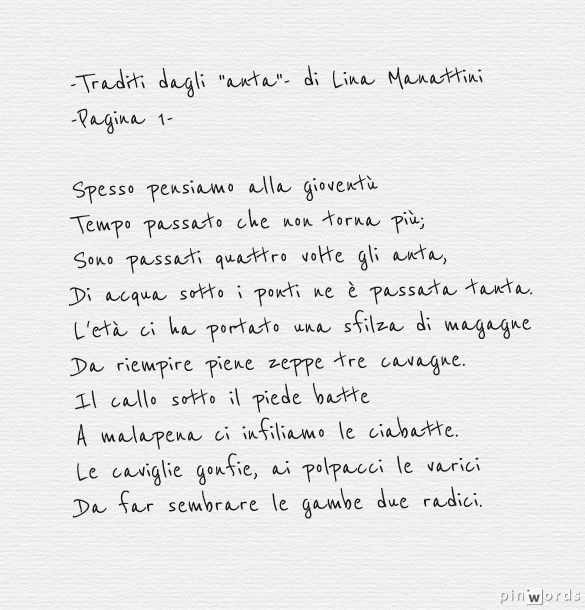 -Traditi dagli "anta"- di Lina Manattini
-Pagina 1-
Spesso pensiamo alla gioventù
Tempo passato che non torna più;
Sono passati quattro volte gli anta,
Di acqua sotto i ponti ne è passata tanta.
L'età ci ha portato una sfilza di magagne
Da riempire piene zeppe tre cavagne.
Il callo sotto il piede batte
A malapena ci infiliamo le ciabatte.
Le caviglie gonfie, ai polpacci le varici
Da far sembrare le gambe due radici.
pinwords